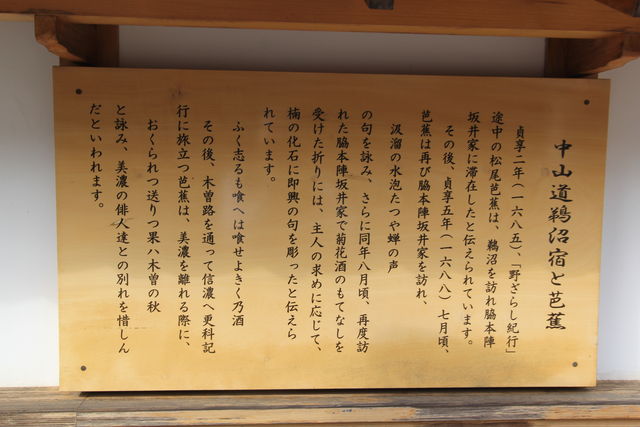 中山道鵜沼宿と芭蕉
貞享二年(一六八五)、「野ざらし紀行」
途中の松尾芭蕉は、鵜沼を訪れ脇本陣
坂井家に滞在したと伝えられています。
その後、貞享五年(一六八八)七月頃、
芭蕉は再び脇本陣坂井家を訪れ、
汲溜の水泡たつや蝉の声
の句を詠み、さらに同年八月頃、再度訪
れた脇本陣坂井家で菊花酒のもてなしを
受けた折りには、主人の求めに応じて、
楠の化石に即興の句を彫ったと伝えら
れています。
ふく志るも喰へは喰せよきく乃酒
その後、木曽路を通って信濃へ更科記
行に旅立つ芭蕉は、美濃を離れる際に、
おくられつ送りつ果ハ木曽の秋
と詠み、美濃の俳人達との別れを惜しん
だといわれます。